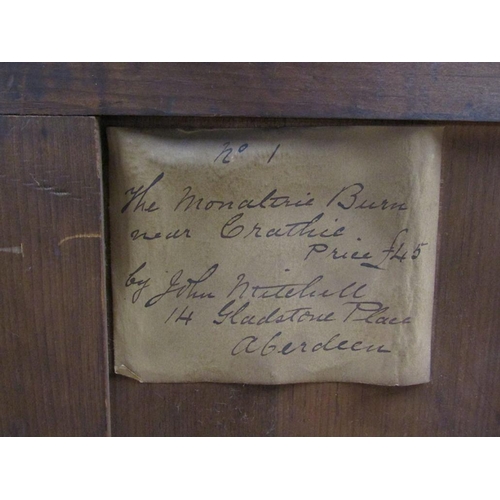 No 1
The Monaltrie Burn
near Crathie
Price £45
by John Mitchell
14 Gladstone Place
Aberdeen